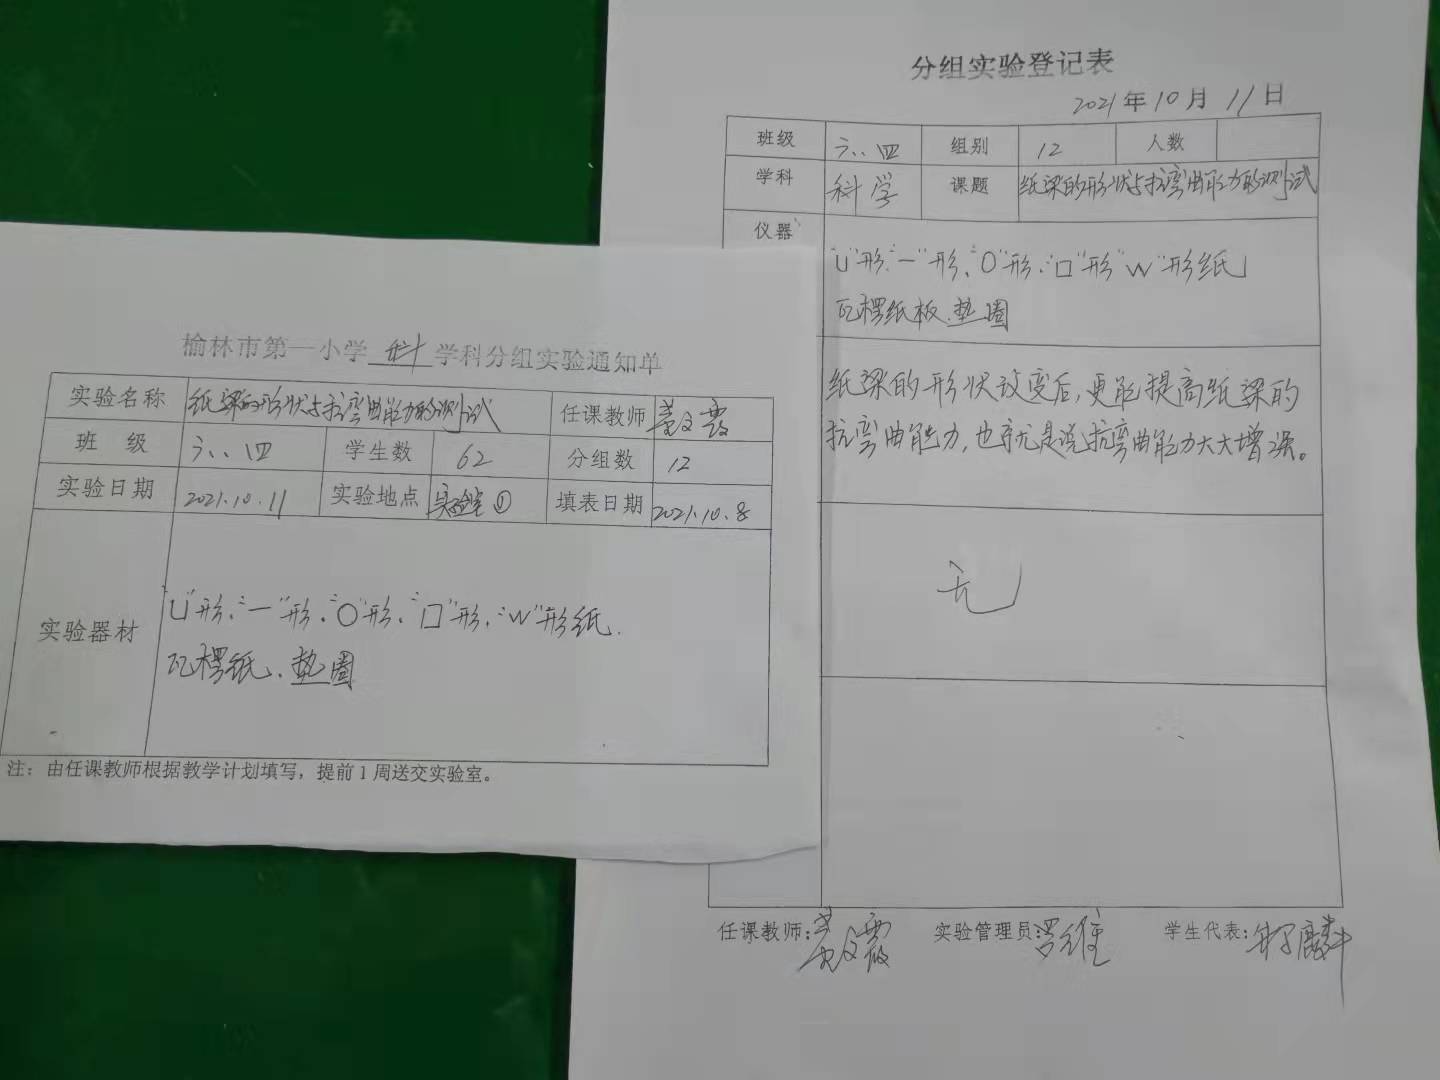 榆林市第一小学 科 学科分组实验通知单
实验名称 纸梁的形状与抗弯曲能力的测试 任课教师 霞
班 级 六.四 学生数 62 分组数 12
实验日期 2021.10.11 实验地点 实验室① 填表日期 2021.10.8
实验器材
"U"形."一"形."O"形."口"形."W"形纸.
瓦楞纸.垫圈
注：由任课教师根据教学计划填写，提前1周送交实验室。
分组实验登记表
2021年10月11日
班级 六.四 组别 12 人数
学科 科学 课题 纸梁的形状与抗弯曲能力的测试
仪器
"U"形."一"形."O"形."口"形"W"形纸
瓦楞纸板.垫圈
纸梁的形状改变后,更能提高纸梁的
抗弯曲能力,也就是说抗弯曲能力大大增强。
无
任课教师: 霞 实验管理员:罗维 学生代表: